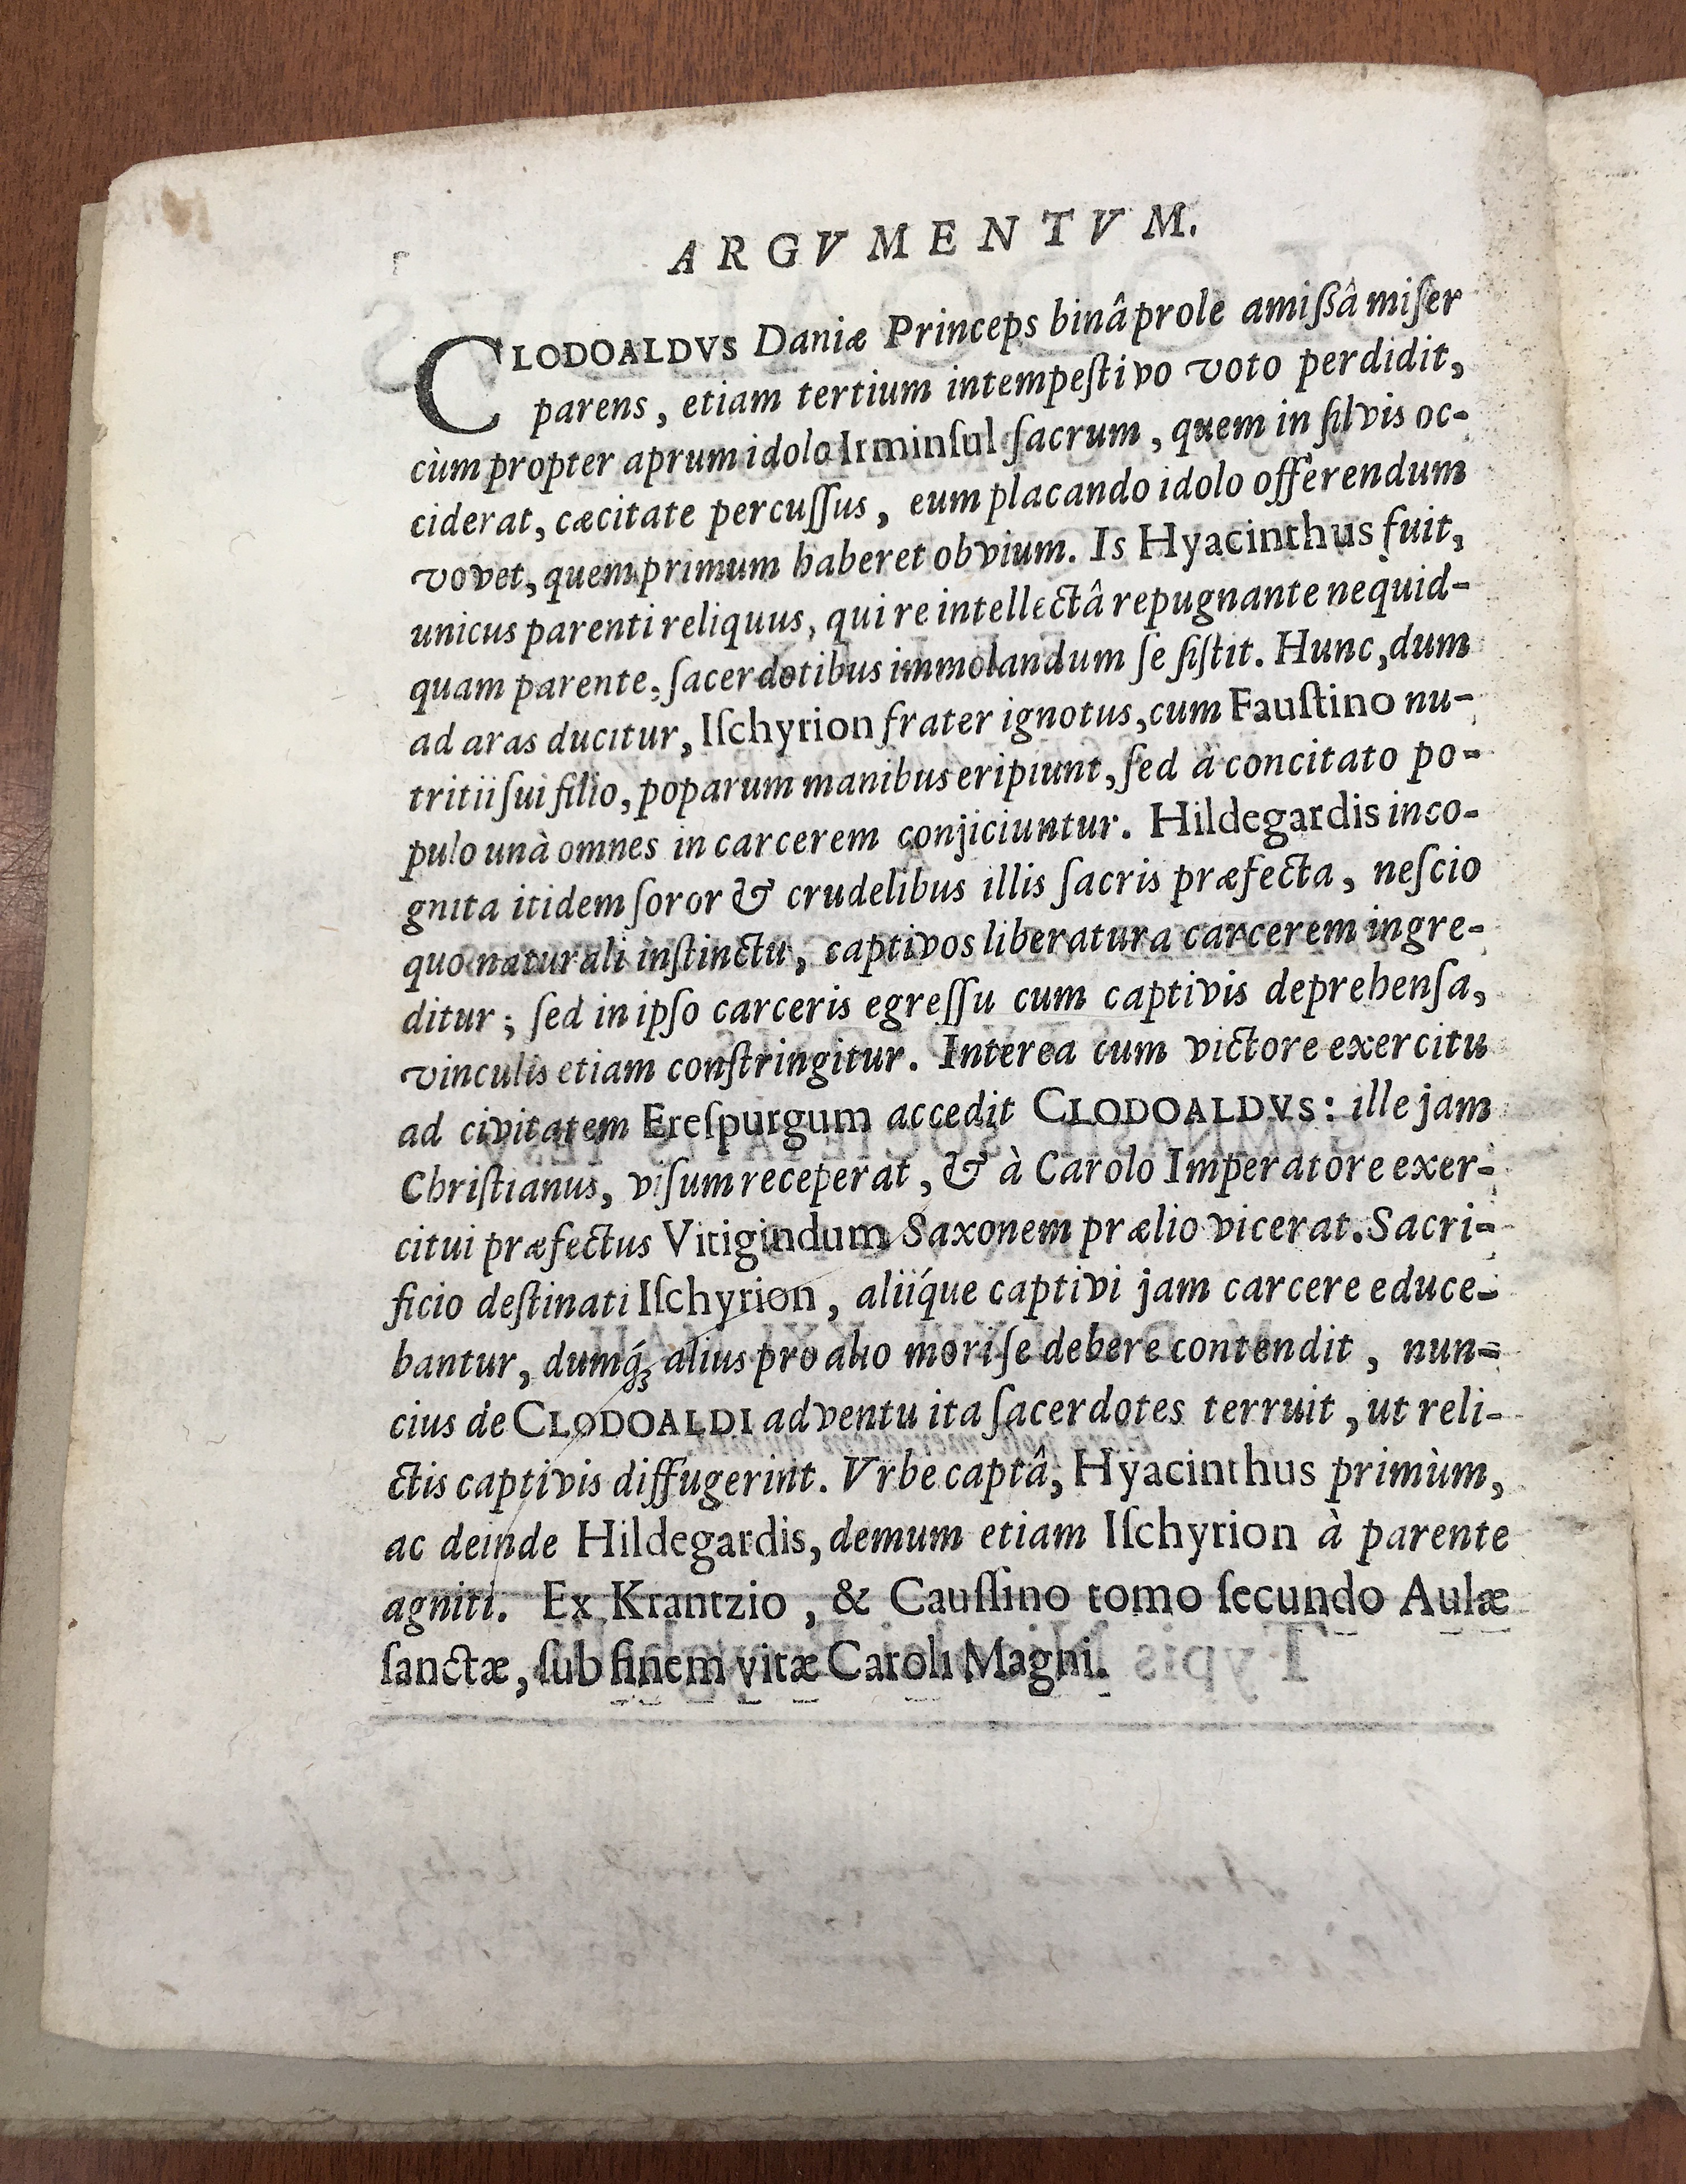 ARGVMENTVM.
CLODOALDVS Daniæ Princeps binâ prole amissâ miser
parens, etiam tertium intempeſtivo voto perdidit,
cùm propter aprum idolo Irminſul ſacrum, quem in ſilvis oc-
ciderat, cæcitate percuſſus, eum placando idolo offerendum
vovet, quem primum haberet obvium. Is Hyacinthus fuit,
unicus parenti reliquus, qui re intellectâ repugnante nequid-
quam parente, ſacerdotibus immolandum ſe ſiſtit. Hunc, dum
ad aras ducitur, Iſchyrion frater ignotus, cum Fauſtino nu-
tritii ſui filio, poparum manibus eripiunt, ſed à concitato po-
pulo unà omnes in carcerem conjiciuntur. Hildegardis inco-
gnita itidem ſoror & crudelibus illis ſacris præfecta, neſcio
quo naturali inſtinctu, captivos liberatura carcerem ingre-
ditur; ſed in ipſo carceris egreſſu cum captivis deprehenſa,
vinculis etiam conſtringitur. Interea cum victore exercitu
ad civitatem Ereſpurgum accedit CLODOALDVS: ille jam
Chriſtianus, viſum receperat, & à Carolo Imperatore exer-
citui præfectus Vitigindum Saxonem prælio vicerat. Sacri-
ficio deſtinati Iſchyrion, aliíque captivi jam carcere educe-
bantur, dumq́ꝫ alius pro alio mori ſe debere contendit, nun-
cius de CLODOALDI adventu ita ſacerdotes terruit, ut reli-
ctis captivis diffugerint. Vrbe captâ, Hyacinthus primùm,
ac deinde Hildegardis, demum etiam Iſchyrion à parente
agniti. Ex Krantzio, & Cauſſino tomo ſecundo Aulæ
ſanctæ, ſub finem vitæ Caroli Magni.